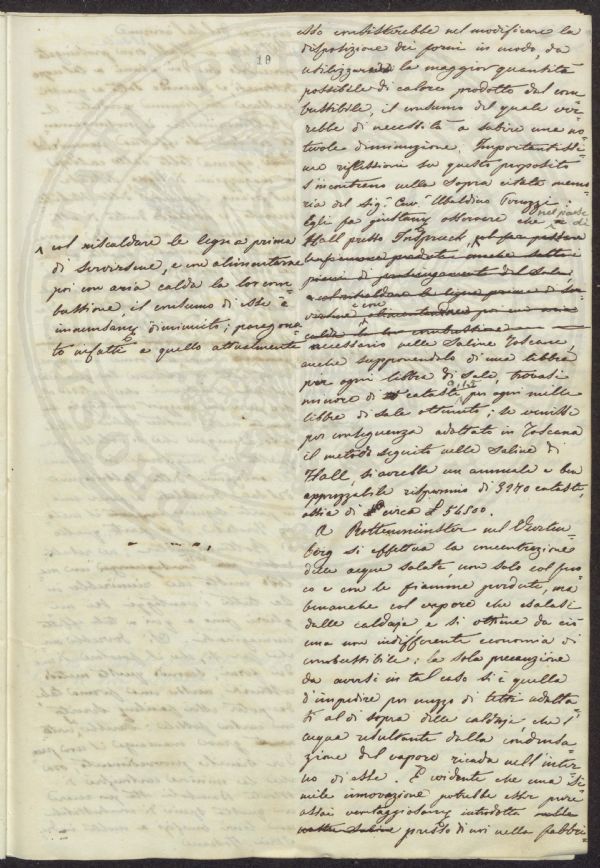 10
esso consisterebbe nel modificare la
disposizione dei forni in modo, da
utilizzare la maggior quantità
possibile di calore prodotto dal com=
bustibile, il consumo del quale ver=
rebbe di necessità a subire una no=
tevole diminuzione. Importantissi=
me riflessioni su questo proposito
s'incontrano nella sopra citata memo=
ria del Sig.r Cav.r Ubaldino Peruzzi:
Egli fa giustam. osservare che nel paese di
Hall presso Inspruck,
col riscaldare le legna prima
di servirsene, e con alimentarne
poi con aria calda la lor com=
bustione, il consumo di esse è
immensam. diminuito; paragona=
to infatti a quello attualmente
necessario nelle Saline Toscane,
anche supponendolo di una libbra
per ogni libbra di sale, trovasi
minore di cataste per ogni mille
libbre di sale ottenuto; se venisse
per conseguenza adottato in Toscana
il metodo seguito nelle Saline di
Hall, si avrebbe un annuale e ben
apprezzabile risparmio di 3270 cataste,
ossia di circa £ 54500.
A Rottenmünster nel Wurtem=
berg si effettua la concentrazione
delle acque salate, non solo col fuo=
co e con le fiamme perdute, ma
benanche col vapore che esalasi
dalle caldaje e si ottiene da ciò
una non indifferente economia di
combustibile; la sola precauzione
da aversi in tal caso si è quella
d'impedire per mezzo di tetti adatta=
ti al di sopra delle caldaje, che l'
acqua resultante dalla condensa=
zione del vapore ricada nell'inter=
no di esse. È evidente che una si=
mile innovazione potrebbe esser pure
assai vantaggiosam. introdotta nelle
nostre Saline presso di noi nella fabbri=